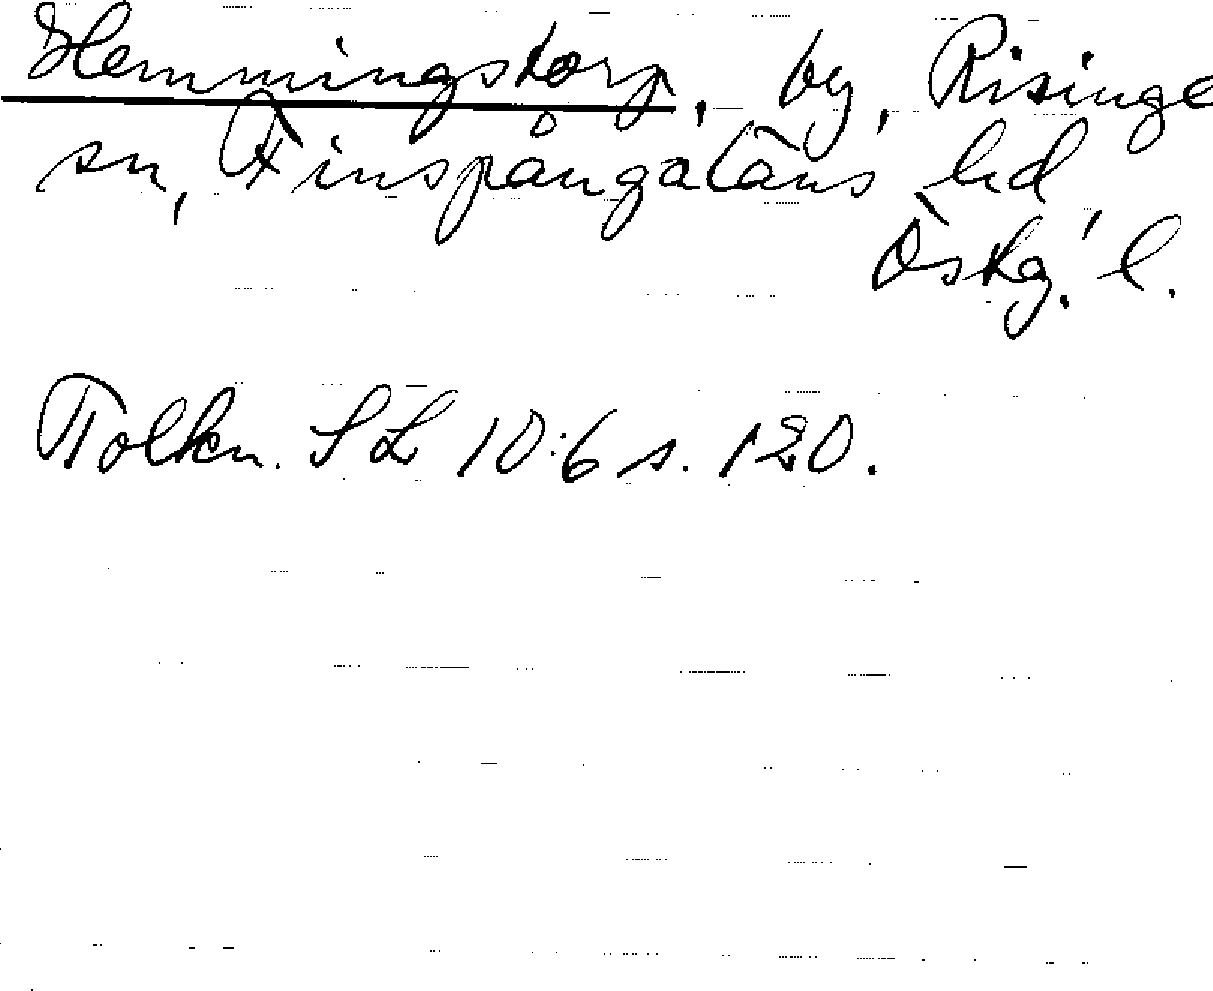 Hemmingstorp, by, Risinge
sn, Finspångaläns hd
Östg. l.
Tolkn. SL 10:6 s. 120.